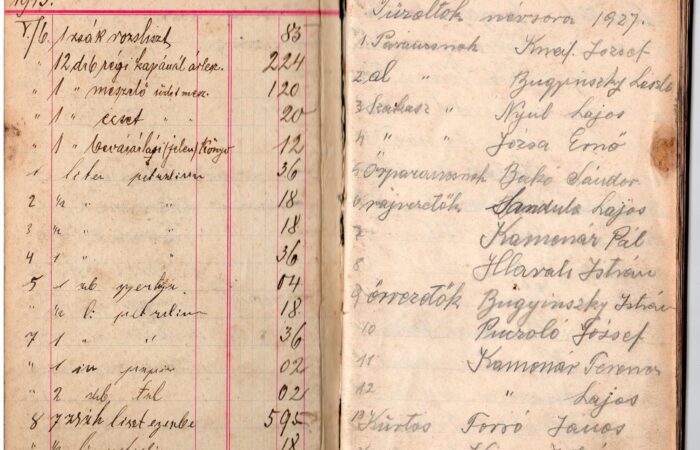 1913.
V./6. 1 zsák rozsliszt 83
" 12 drb régi kapánál 224
" 1 " meszelő 120
" 1 " ecset " " 20
" 1 " bevásárlási (jelen) könyv 12
1 liter petroleum 36
2 ½ " " 18
3 ½ " " 18
4 1 " " 36
5 1 gyertya 04
" ½ li petroleum 18
7 1 " " 36
" 1 papir 02
" 2 02
8 7 zsák liszt 595
18
Tűzoltók névsora 1927.
1. Parancsnok Knef. József
2. al " Bugyinszky László
3 Szakasz " Nyul Lajos
4 " " Józsa Ernő
5 Őrparancsnok Bakó Sándor
6 rajvezetők Sandula Lajos
7 Kamenár Pál
8 Hlavati István
9 őrvezetők Bugyinszky István
10 Puczoló József
11 Kamenár Ferenc
12 " Lajos
13 Kürtos Forró János